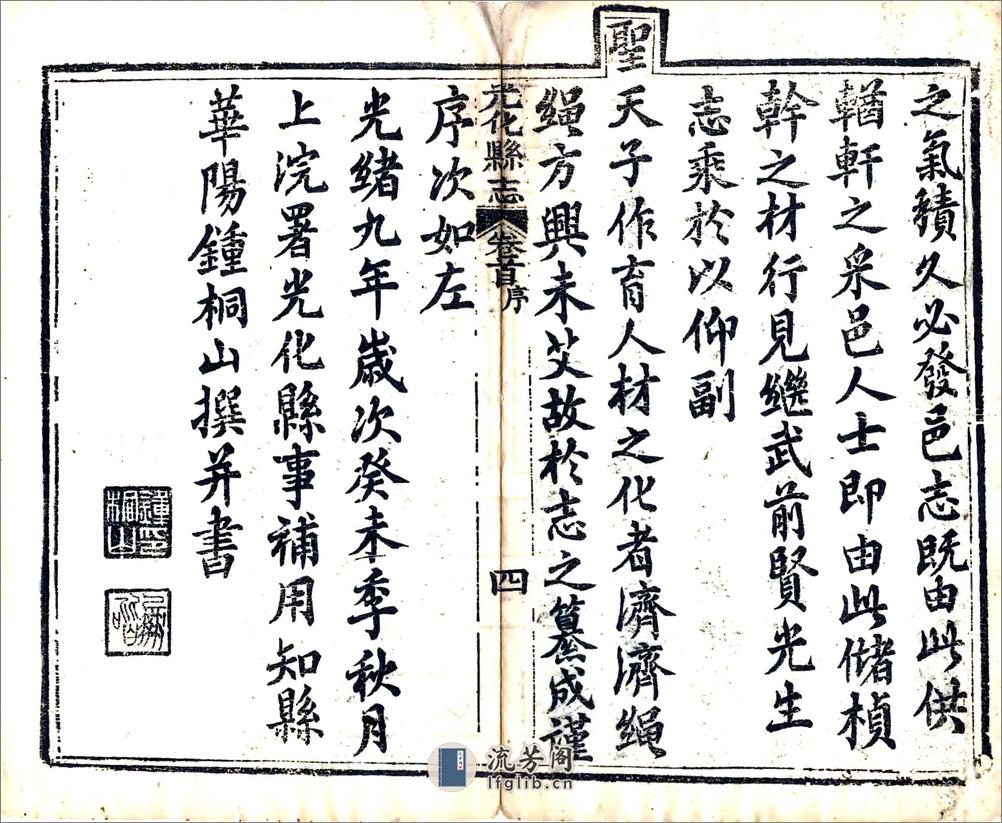 之氣積久必發邑志既由此供
輶軒之采邑人士即由此儲楨
幹之材行見繼武前賢光生
志乘於以仰副
聖
天子作育人材之化者濟濟繩
繩方興未艾故於志之纂成謹
光化縣志 卷首 序 四
序次如左
光緒九年歲次癸未季秋月
上浣署光化縣事補用知縣
華陽鍾桐山撰并書
鍾印桐山
流芳阁
lfglib.cn